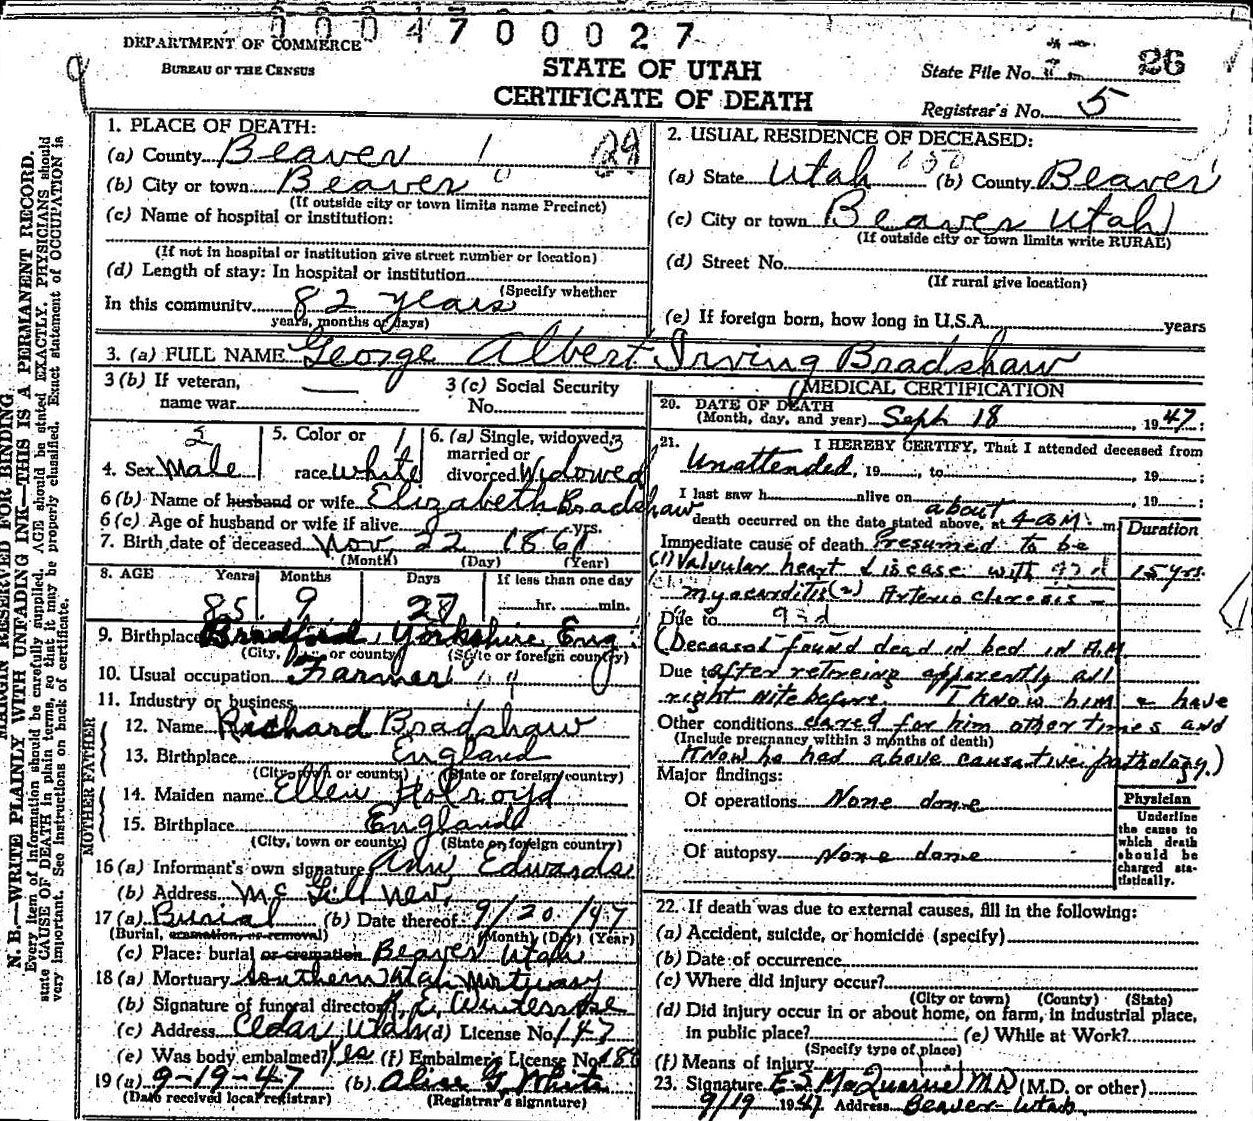 0 0 0 4 7 0 0 0 2 7
DEPARTMENT OF COMMERCE
BUREAU OF THE CENSUS
STATE OF UTAH
CERTIFICATE OF DEATH
State File No. 26
Registrar's No. 5
MARGIN RESERVED FOR BINDING
N. B.—WRITE PLAINLY WITH UNFADING INK—THIS IS A PERMANENT RECORD.
Every item of information should be carefully supplied. AGE should be stated EXACTLY. PHYSICIANS should
state CAUSE OF DEATH in plain terms, so that it may be properly classified. Exact statement of OCCUPATION is
very important. See instructions on back of certificate.
1. PLACE OF DEATH:
(a) County Beaver
(b) City or town Beaver
(If outside city or town limits name Precinct)
(c) Name of hospital or institution:
(If not in hospital or institution give street number or location)
(d) Length of stay: In hospital or institution
(Specify whether
In this community 82 years
years, months or days)
2. USUAL RESIDENCE OF DECEASED:
(a) State Utah (b) County Beaver
(c) City or town Beaver Utah
(If outside city or town limits write RURAL)
(d) Street No.
(If rural give location)
(e) If foreign born, how long in U.S.A. years
3. (a) FULL NAME George Albert Irving Bradshaw
3 (b) If veteran, name war
3 (c) Social Security No.
4. Sex Male
5. Color or race White
6. (a) Single, widowed, married or divorced Widowed
6 (b) Name of husband or wife Elizabeth Bradshaw
6 (c) Age of husband or wife if alive yrs.
7. Birth date of deceased Nov 22 1861
(Month) (Day) (Year)
8. AGE Years Months Days If less than one day
85 9 27 hr. min.
9. Birthplace Bradford, Yorkshire Eng.
(City, town or county) (State or foreign country)
10. Usual occupation Farmer
11. Industry or business
FATHER
12. Name Richard Bradshaw
13. Birthplace England
(City, town or county) (State or foreign country)
MOTHER
14. Maiden name Ellen Holroyd
15. Birthplace England
(City, town or county) (State or foreign country)
16 (a) Informant's own signature Ann Edwards
(b) Address McGill Nev.
17 (a) Burial (b) Date thereof 9/20/47
(Burial, cremation, or removal) (Month) (Day) (Year)
(c) Place: burial or cremation Beaver Utah
18 (a) Mortuary Southern Utah Mortuary
(b) Signature of funeral director
(c) Address Cedar, Utah (d) License No. 147
(e) Was body embalmed? Yes (f) Embalmer's License No. 188
19 (a) 9-19-47 (b) Alice G. White
(Date received local registrar) (Registrar's signature)
MEDICAL CERTIFICATION
20. DATE OF DEATH
(Month, day, and year) Sept 18, 1947
21. I HEREBY CERTIFY, That I attended deceased from
Unattended, 19 , to , 19 ;
I last saw h alive on , 19 ;
death occurred on the date stated above, at about 4 AM. m
Duration
Immediate cause of death Presumed to be
(1) Valvular heart disease with 15 yrs.
myocarditis (2) Arterio clerosis
Due to 93d
(Deceased found dead in bed in A.M.
Due to after retireing apperently all
right nite before. I know him & have
Other conditions cared for him other times and
(Include pregnancy within 3 months of death)
know he had above causative pathology.)
Major findings:
Of operations None done
Of autopsy None done
Physician
Underline the cause to which death should be charged statistically.
22. If death was due to external causes, fill in the following:
(a) Accident, suicide, or homicide (specify)
(b) Date of occurrence
(c) Where did injury occur?
(City or town) (County) (State)
(d) Did injury occur in or about home, on farm, in industrial place,
in public place? (e) While at Work?
(Specify type of place)
(f) Means of injury
23. Signature M.D. (M.D. or other)
9/19 1947 Address Beaver-Utah.